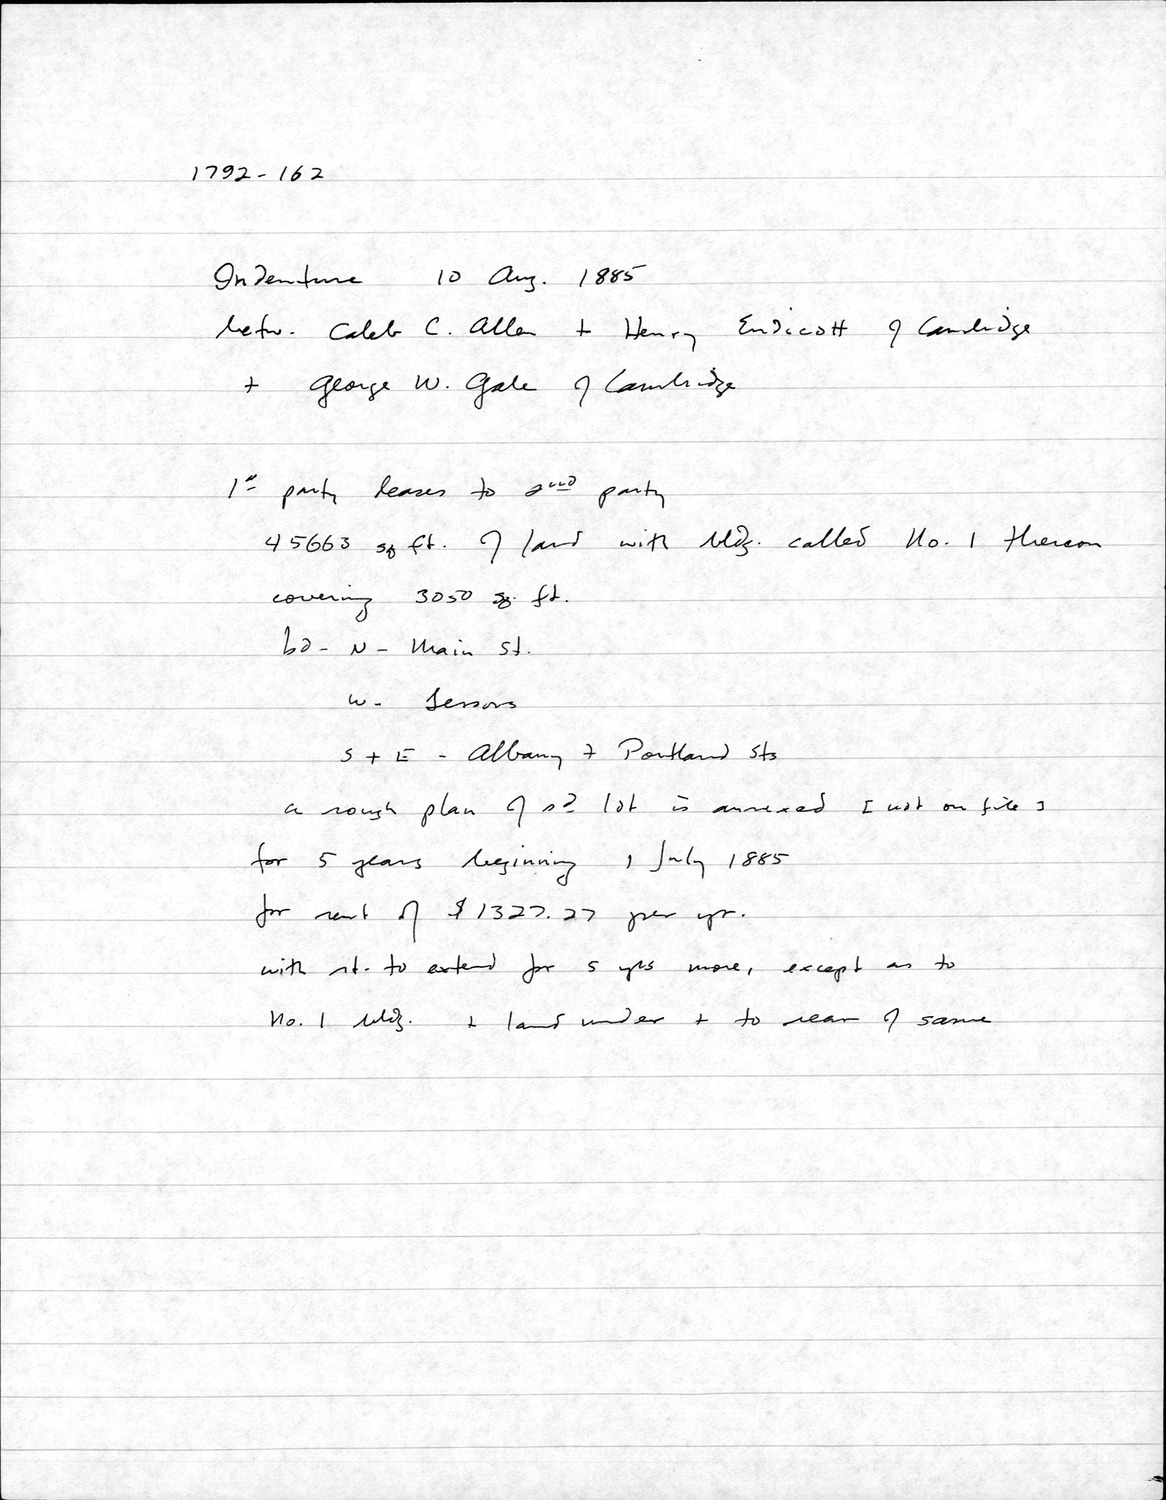 1792-162
Indenture 10 Aug. 1885
betw. Caleb C. Allen + Henry Endicott of Cambridge
+ George W. Gale of Cambridge
1st party leases to 2nd party
45663 sq ft. of land with bldg. called No. 1 thereon
covering 3050 sq. ft.
bd - N - Main St.
W - Lessors
S + E - Albany + Portland Sts
a rough plan of sd lot is annexed [not on file]
for 5 years beginning 1 July 1885
for rent of $1327.27 per yr.
with rt. to extend for 5 yrs more, except as to
No. 1 bldg. + land under + to rear of same